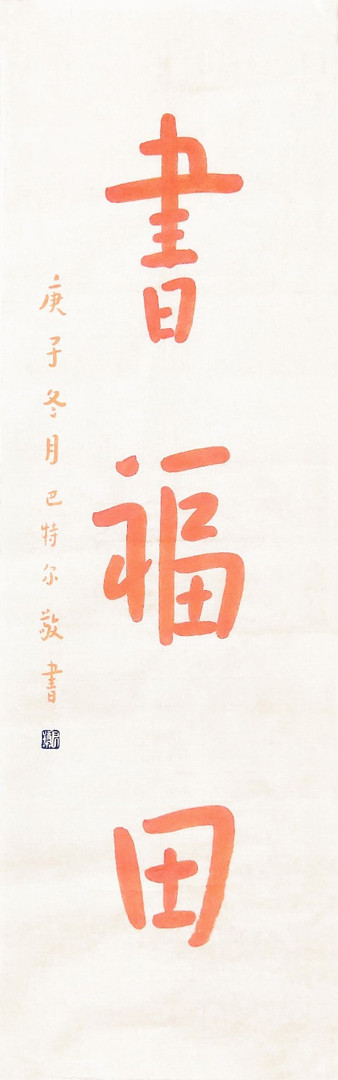 書福田
庚子冬月巴特尔敬書